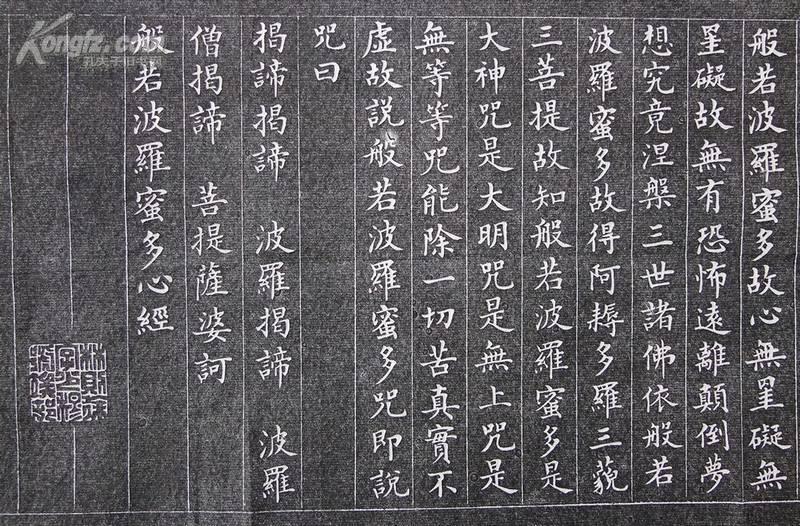 般若波羅蜜多故心無罣礙無
罣礙故無有恐怖遠離顛倒夢
想究竟涅槃三世諸佛依般若
波羅蜜多故得阿耨多羅三藐
三菩提故知般若波羅蜜多是
大神咒是大明咒是無上咒是
無等等咒能除一切苦真實不
虛故說般若波羅蜜多咒即說
咒曰
揭諦揭諦 波羅揭諦 波羅
僧揭諦 菩提薩婆訶
般若波羅蜜多心經
Kongfz.com
孔夫子旧书网